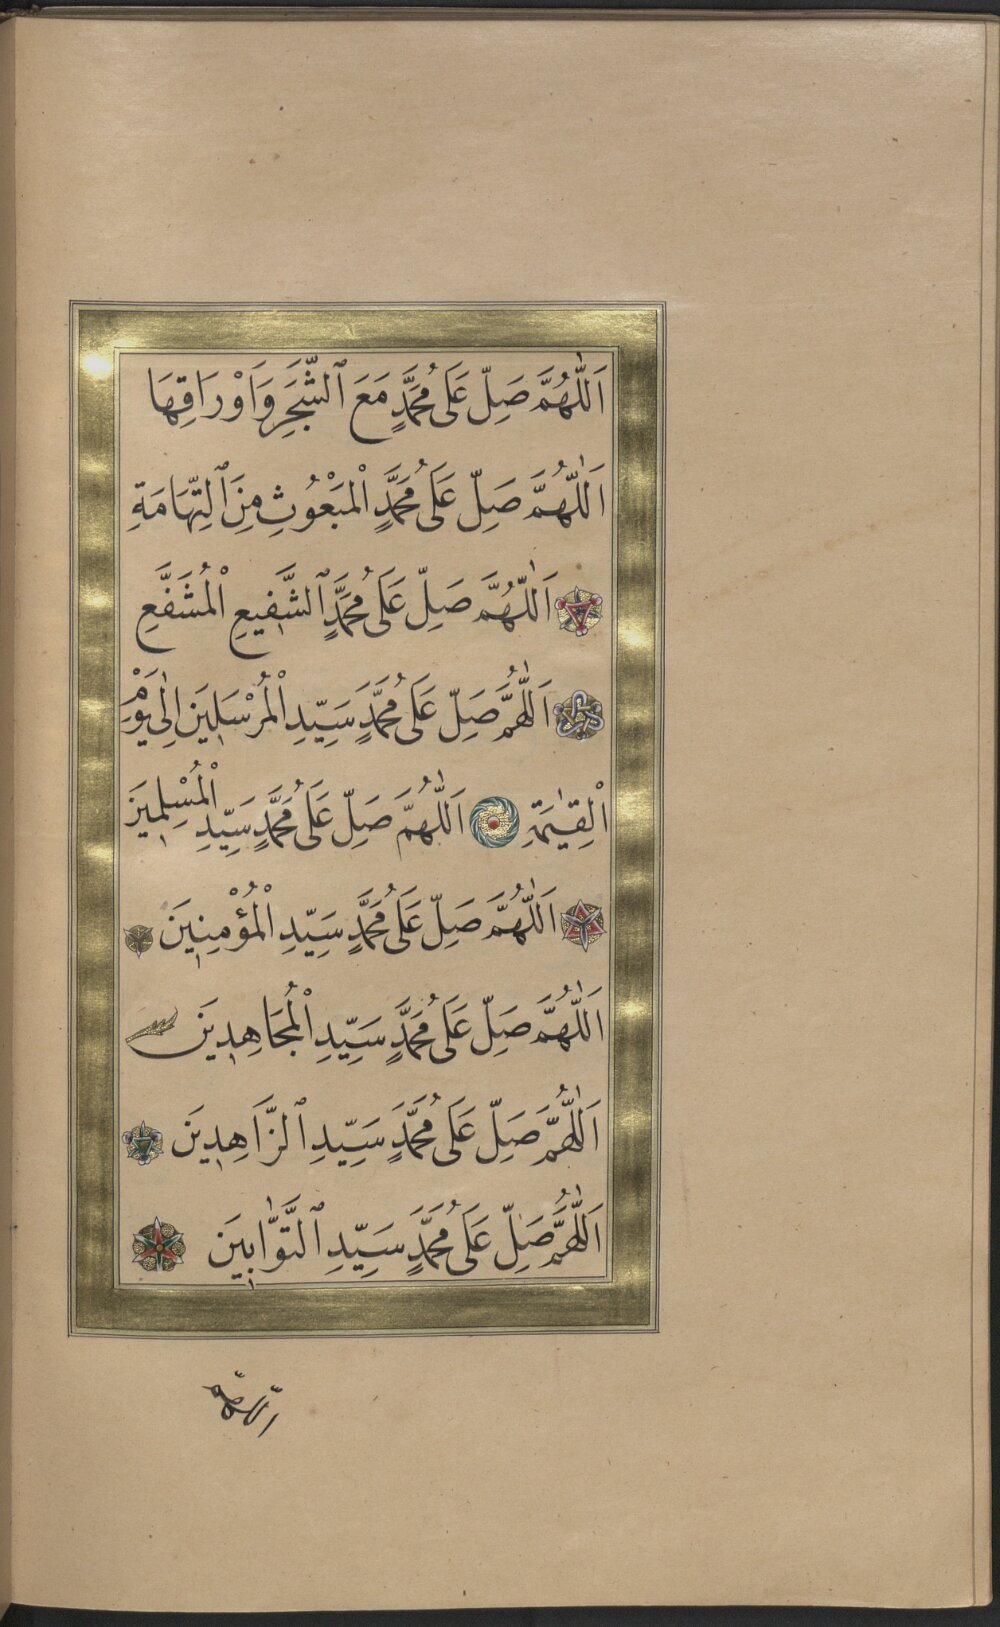 اَللّٰهُمَّ صَلِّ عَلَى مُحَمَّدٍ مَعَ ٱلشَّجَرِ وَاَوْرَاقِهَا
اَللّٰهُمَّ صَلِّ عَلَى مُحَمَّدٍ الْمَبْعُوثِ مِنَ ٱلتِّهَامَةِ
اَللّٰهُمَّ صَلِّ عَلَى مُحَمَّدٍ ٱلشَّفِيعِ الْمُشَفَّعِ
اَللّٰهُمَّ صَلِّ عَلَى مُحَمَّدٍ سَيِّدِ الْمُرْسَلِينَ اِلٰى يَوْمِ
الْقِيٰمَةِ اَللّٰهُمَّ صَلِّ عَلَى مُحَمَّدٍ سَيِّدِ الْمُسْلِمِينَ
اَللّٰهُمَّ صَلِّ عَلَى مُحَمَّدٍ سَيِّدِ الْمُؤْمِنِينَ
اَللّٰهُمَّ صَلِّ عَلَى مُحَمَّدٍ سَيِّدِ الْمُجَاهِدِينَ
اَللّٰهُمَّ صَلِّ عَلَى مُحَمَّدٍ سَيِّدِ ٱلزَّاهِدِينَ
اَللّٰهُمَّ صَلِّ عَلَى مُحَمَّدٍ سَيِّدِ ٱلتَّوَّابِينَ